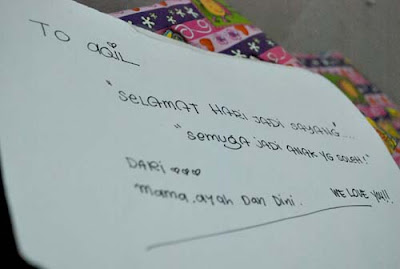 TO AQIL
"SELAMAT HARI JADI SAYANG"....
"SEMUGA JADI ANAK YG SOLEH!"
DARI
mama, ayah Dan Dini.
WE LOVE YOU!!